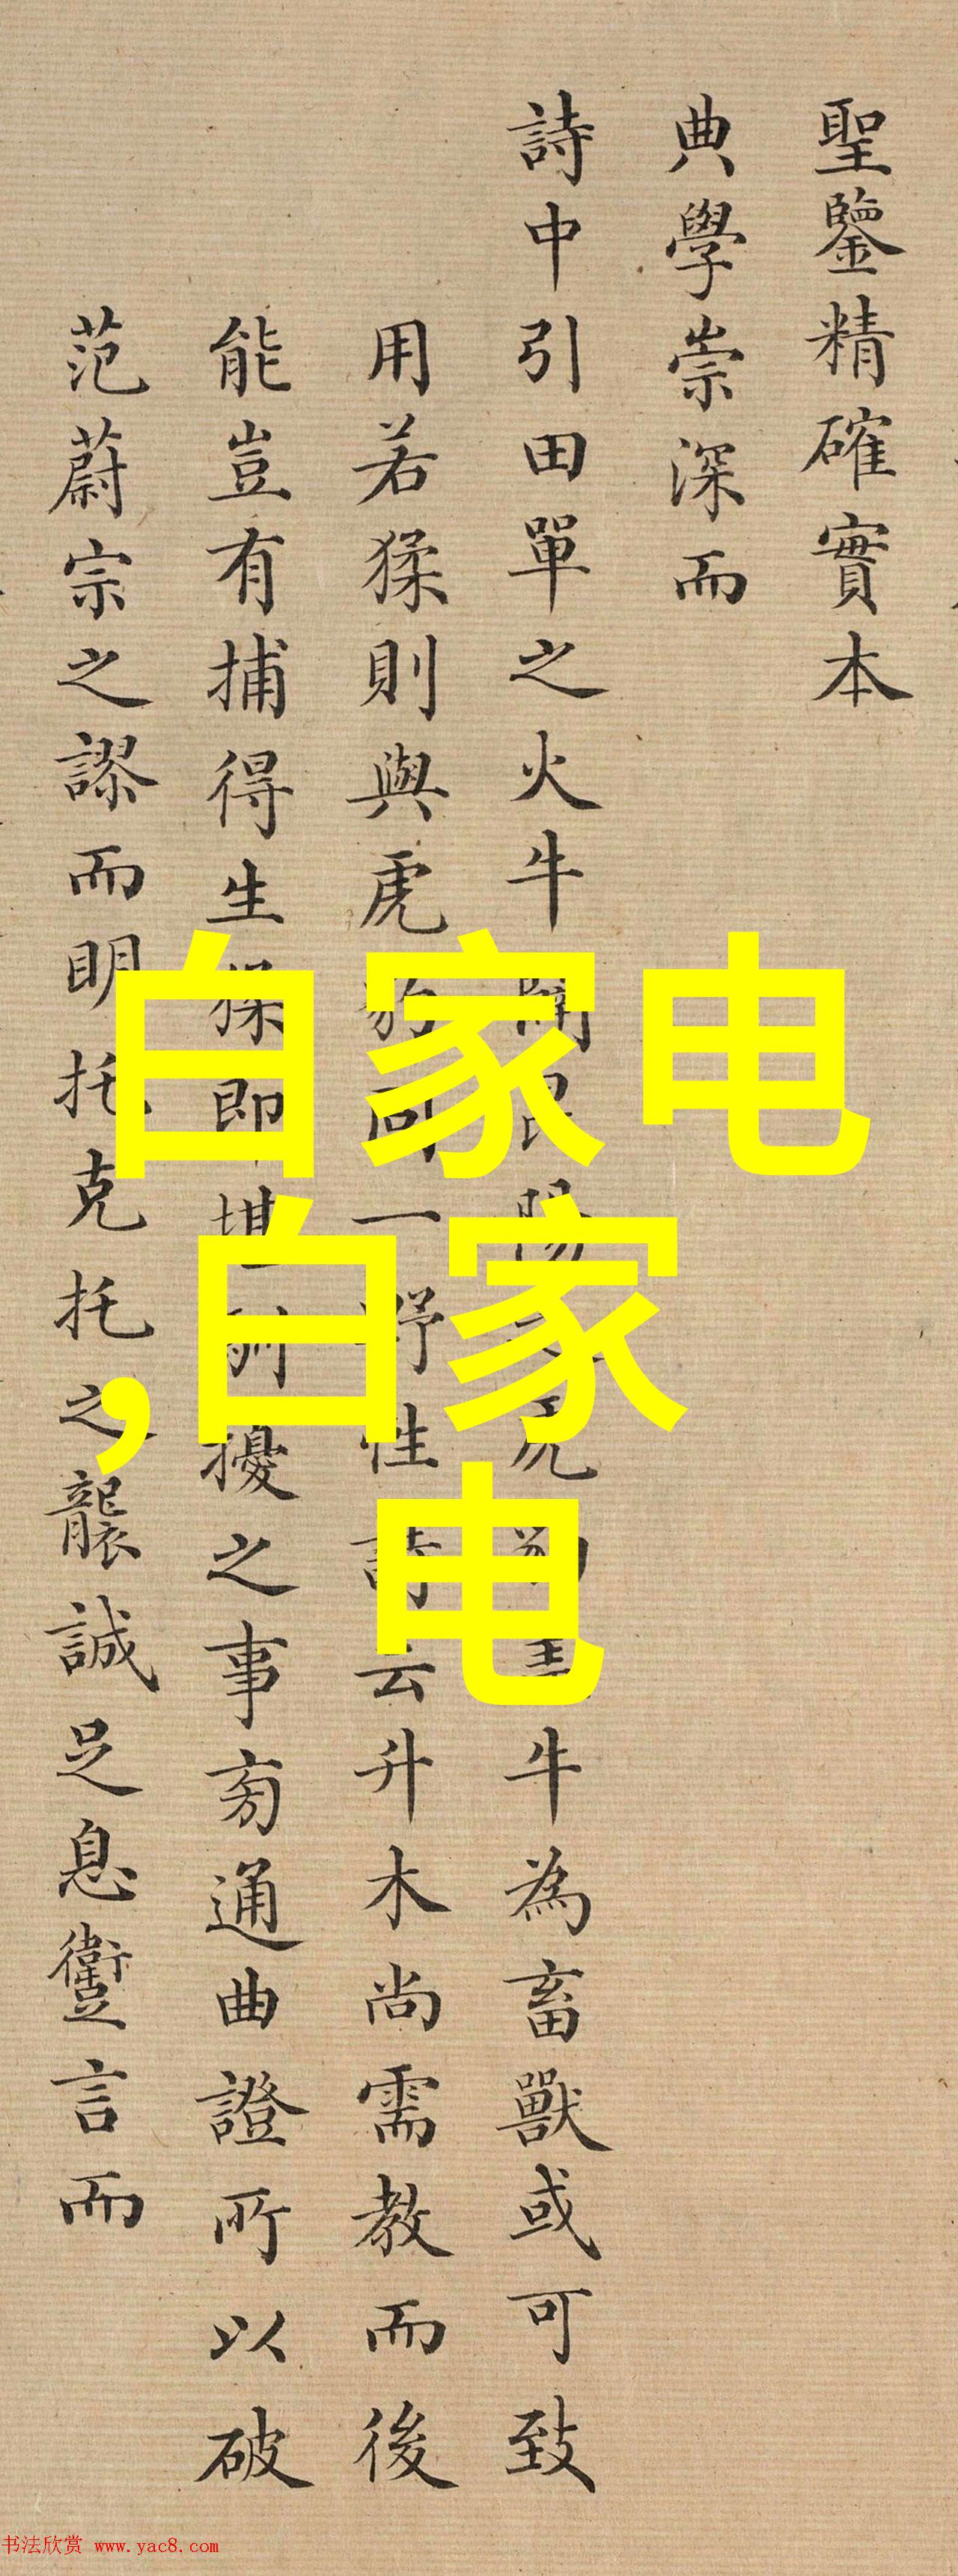 聖鑒精確實本
典學崇深而
詩中引田單之火牛
牛為畜獸或可致
用若猱則與虎豹同一野性詩云升木尚需教而後
能豈有捕得生猱即堪馴擾之事旁通曲證所以破
范蔚宗之謬而明托克托之襲誠足息衞言而
白家电
,白家
电
书法欣赏 www.yac8.com